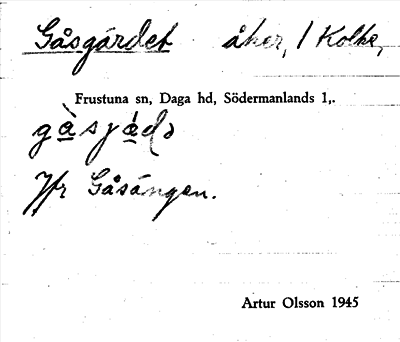 Gåsgärdet åker, 1 Kolbo,
Frustuna sn, Daga hd, Södermanlands l,.
gàsjàdə
Jfr Gåsängen.
Artur Olsson 1945